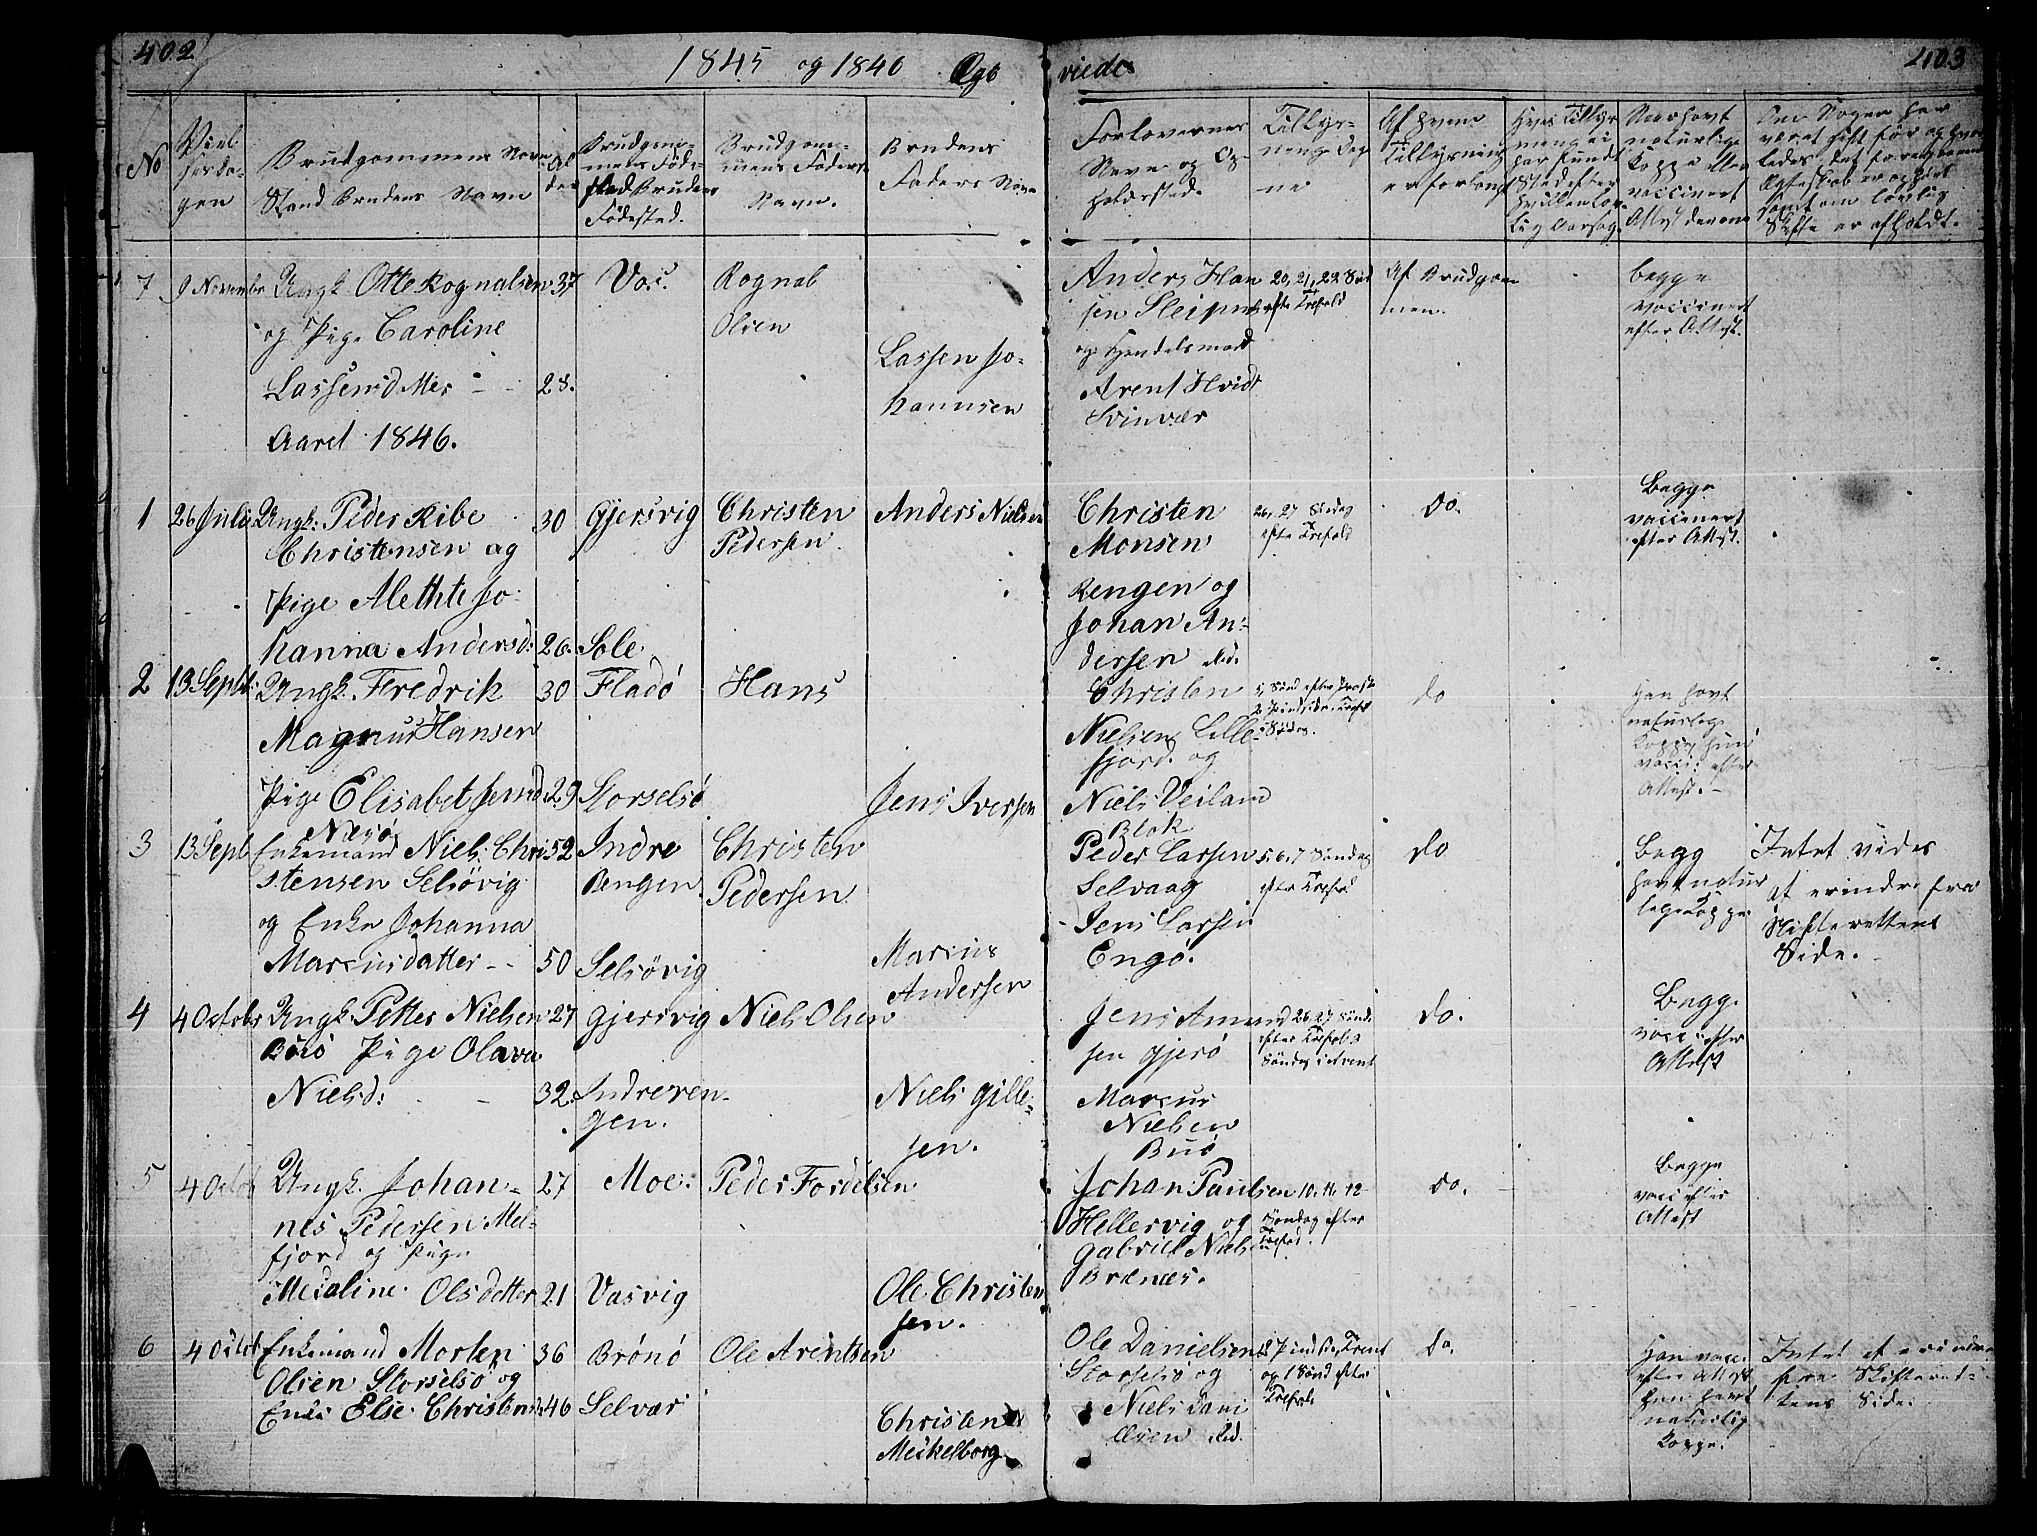 402
1845 og 1846 Ægteviede
403
No
Vielsesdagen
Brudgommens Navn
Stand Brudens Navn
Alder
Brudgommens Fødested
Brudens
Fødested.
Brudgommens Faders
Navn.
Brudens
Faders Navn
Forlovernes
Navn og Opholdssted.
Tillysningsdagene
Af hvem
Tillysning
er forlangt
Hvis Tillysning ei
har fundet
Sted efter
hvilken Lovlig Aarsag.
Om havt
naturlige
Kopper eller
vaccineret
Attest derom
Om Nogen har
været gift før og hvorledes det foregaaende
Ægteskab er ophørt
samt om lovlig
Skifte er afholdt.
7 9 November Ungk. Otte Rognalsen 37 Vos. Rognal
Olsen
og Pige Caroline
Lassensdatter 28.
Lassen Johannsen
Anders Hansen Sleipnes
og Handelsmand
Arent Hvidt
Svinvær
20, 21, 22 Sønd
efter Trefold
Af Brudgommen.
Begge
vaccineret
efter Attest.
Aaret 1846.
1 26 Julii Ungk. Peder Ribe 30 Gjersvig Christen
Pedersen
Christensen og
Pige Alethte Johanna Andersd: 26. Sole.
Anders Nielsen
Christen
Monsen
Rengen og
Johan Andersen ibd.
26, 27 Søndag
efter Trefold
do.
Begge
vaccineret
efter Attest.
2 13 Septb: Ungk. Fredrik 30 Fladø Hans
Magnus Hansen
Pige Elisabet Jensd: 29 Storselsø
Jens Iversen
Christen
Nielsen Lillefjord. og
Niels Veiland
Blok
do
Han havt
naturlige
Kopper, hun
vacci: efter
Attest.
3 13 Sept Enkemand Niels Chri 52 Indre Christen
Næsø
stensen Selsøvig Rengen Pedersen
og Enke Johanna
Marcusdatter 50 Selsøvig
Marcus
Andersen
Peder Larsen
Selvaag
Jens Larsen
Engø.
5, 6, 7 Søndag
efter Trefold
do
Begge
havt naturlige Kopper
Intet vides
at erindre fra
Skifterettens
Side.
4 4 Octobr Ungk. Petter Nielsen 27 Gjersvig Niels Olsen
Buø Pige Olava
Nielsd: 32. Indrerengen.
Niels Gillesen.
Jens Amundsen Gjerø
Marcus
Nielsen
Buø
26, 27 Sønd.
efter Trefol. og
Søndag i Advent
do.
Begge
vacc: efter
Attest
5 4 Octob Ungk. Johan- 27 Moe: Peder Fordelsen
nes Pedersen Melfjord og Pige
Medaline Olsdatter 21 Vasvig
Ole Christensen.
Johan Paulsen
Hellervig og
Gabriel Nielsen
Brænæs.
10, 11, 12
Søndag efter
Trefold.
do.
Begge
vacc efter
Attest
6 4 Octob Enkemand Morten 36 Brønø Ole Arentsen
Olsen Storselsø og
Enke Else Christensd: 46 Selvær
Christen
Meikelborg
Ole Danielsen
Storselsø og
Niels Danielsen ibd.
og 1 Sønd efter
Trefold
do.
Han vacc.
efter Attest
hun havt
naturlig
Kopper.
Intet at erindre
fra Skifterettens Side.